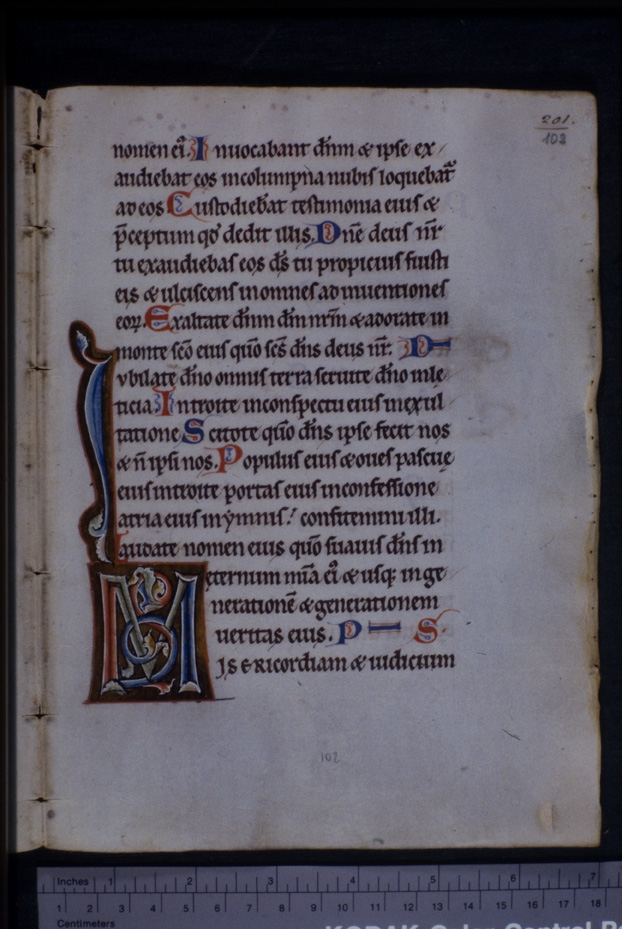 201.
103
nomen ei᷒. Inuocabant dn̄m & ipse ex
audiebat eos in columpna nubis loquebat̄
ad eos Custodiebāt testimonia eius &
p̄ceptum qd̓ dedit illis. Dn̄e deus nr̄
tu exaudiebas eos ds̄ tu propicius fuisti
eis & ulciscens in omnes adinuentiones
eoꝝ. Exaltate dn̄m dm̄ nr̄m & adorate in
monte sc̄o eius qūo sc̄s dn̄s deus nr̄. D
Iubilate dn̄o omnis terra seruite dn̄o in le
ticia Introite in conspectu eius in exul
tatione Scitote qūo dn̄s ipse fecit nos
& n̄ ipsi nos. Populus eius & oues pascuę
eius introite portas eius in confessione
atria eius in ẏmnis! confitemini illi.
Laudate nomen eius qūo suauis dn̄s in
eternum mīa ei᷒ & usq; in ge
nerationē & generationem
ueritas eius. P S.
MISERicordiam & iudicium
102
Inches 1 2 3 4 5 6 7
1 2 3 4 5 6 7 8 9 10 11 12 13 14 15 16 17 18
Centimeters
KODAK Color Control